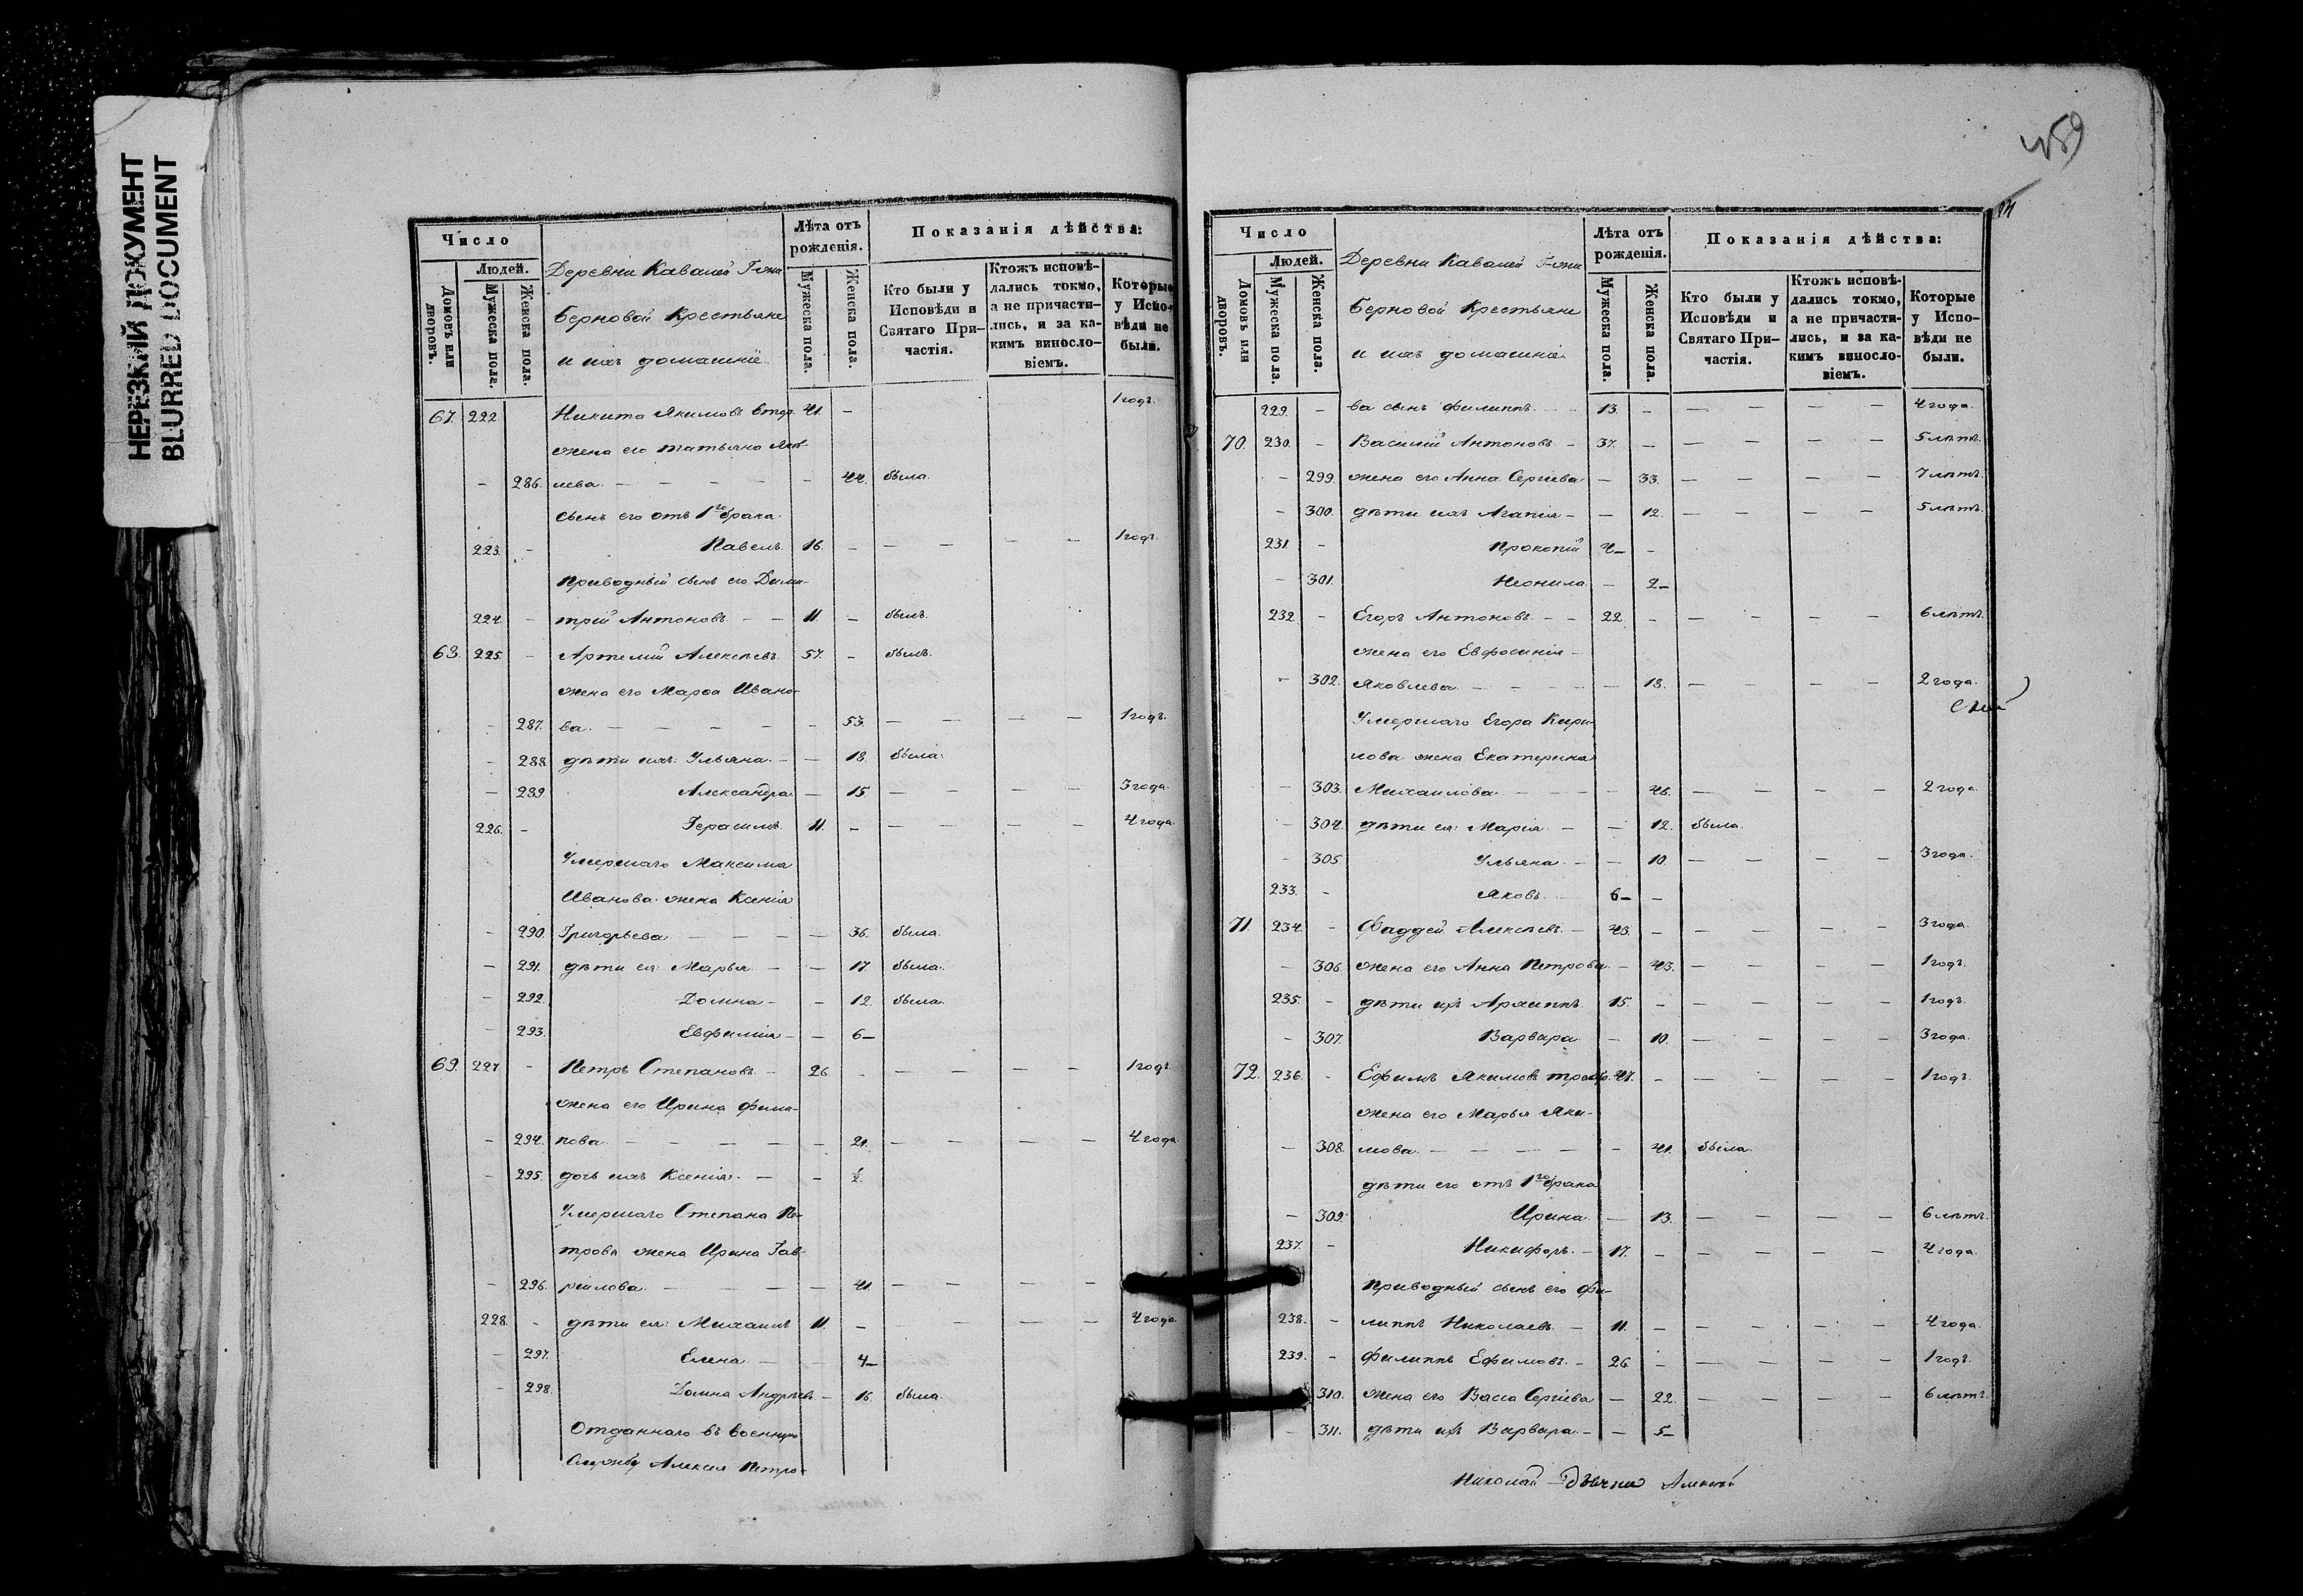 НЕРЕЗКИЙ ДОКУМЕНТ
BLURRED DOCUMENT
Число
Людей.
Домовъ или дворовъ.
Мужеска пола.
Женска пола.
Деревни Кавашей Г-жи
Берновой крестьяне
и ихъ домашніе.
Лѣта отъ рожденія.
Мужеска пола.
Женска пола.
Показанія дѣйства:
Кто были у Исповѣди и Святаго При-частія.
Ктожъ исповѣ-дались токмо, а не причасти-лись, и за ка-кимъ винносло-віемъ.
Которые у Испо-вѣди не были.
67. 222 Никита Якимовъ 41. — 1 годъ.
жена его Татьяна
— 286. лева — — — — — 44. была.
сынъ его отъ 1го брака
223. — Павелъ 16. — — — — — 1 годъ.
Приводный сынъ его Дими-
224. — трій Антоновъ — — 11 — былъ.
68. 225. — Артемій Алексѣевъ 57. — былъ.
жена его Марѳа Ивано-
— 287. ва. — — — — — 53. — — — — 1 годъ.
— 288. дѣти ихъ: Ульяна — — 18. была.
— 289. Александра — 15 — — — — 3 года.
226. — Герасимъ 11. — — — — — 4 года.
Умершаго Максима
Иванова жена Ксенія
— 290. Григорьева — — — — 36. была.
— 291. дѣти ея: Марья — — 17. была.
— 292. Домна — — 12. была.
— 293. Евфимія — — 6 —
69. 227. — Петръ Степановъ — 26 — — — — — 1 годъ.
жена его Ирина Фили-
— 294. пова — — — — — 21. — — — — 4 года.
— 295. дочь ихъ Ксенія — — ½.
Умершаго Степана Пе-
трова жена Ирина Гав-
— 296. рилова — — — — 41. — — — —
228. — дѣти ея: Михаилъ 11. — — — — — 4 года.
— 297. Елена — — 4 —
— 298. Домна Андрѣев. — 16. была.
Отданнаго въ военную
службу Алексея Петро-
459
Число
Людей.
Домовъ или дворовъ.
Мужеска пола.
Женска пола.
Деревни Кавашей Г-жи
Берновой крестьяне
и ихъ домашніе.
Лѣта отъ рожденія.
Мужеска пола.
Женска пола.
Показанія дѣйства:
Кто были у Исповѣди и Святаго При-частія.
Ктожъ исповѣ-дались токмо, а не причасти-лись, и за ка-кимъ винносло-віемъ.
Которые у Испо-вѣди не были.
229. — ва сынъ Филиппъ. — — 13. — — — — — 4 года.
70. 230. — Василій Антоновъ — 37. — — — — — 5 лѣтъ.
— 299. жена его Анна Сергіева — 33. — — — — 7 лѣтъ.
— 300. дѣти ихъ Агапія — — 12. — — — — 5 лѣтъ.
231. — Прокопій 4 — —
— 301. Неонила — 2 —
232. — Егоръ Антоновъ — — 22. — — — — — 6 лѣтъ.
жена его Евфросинія —
— 302. Яковлева — — — — — 18. — — — — 2 года.
Умершаго Егора Кири-
лова жена Екатерина
— 303. Михаилова — — — — 46. — — — — 2 года.
— 304. дѣти ея: Марія — — 12. была.
— 305. Ульяна — — 10. — — — — 3 года.
233. — Яковъ — 6 — —
71. 234. — Фаддей Алексѣевъ — 43. — — — — — 3 года.
— 306. жена его Анна Петрова — 43. — — — — 1 годъ.
235. — дѣти ихъ Архиппъ 15. — — — — — 1 годъ.
— 307. Варвара — 10. — — — — 3 года.
72. 236. — Ефимъ Якимовъ 47. — — — — — 1 годъ.
жена его Марья Яки-
— 308. мова — — — — — 41. была.
дѣти его отъ 1го брака
— 309. Ирина — 13. — — — — 6 лѣтъ.
237. — Никифоръ — 17. — — — — — 4 года.
Приводный сынъ его Фи-
238. — липпъ Николаевъ — 11. — — — — — 4 года.
239. — Филиппъ Ефимовъ — 26. — — — — — 1 годъ.
310. жена его Васса Сергіева — 22. — — — — 6 лѣтъ.
— 311. дѣти ихъ Варвара — — 5 —
Николай Алексѣй